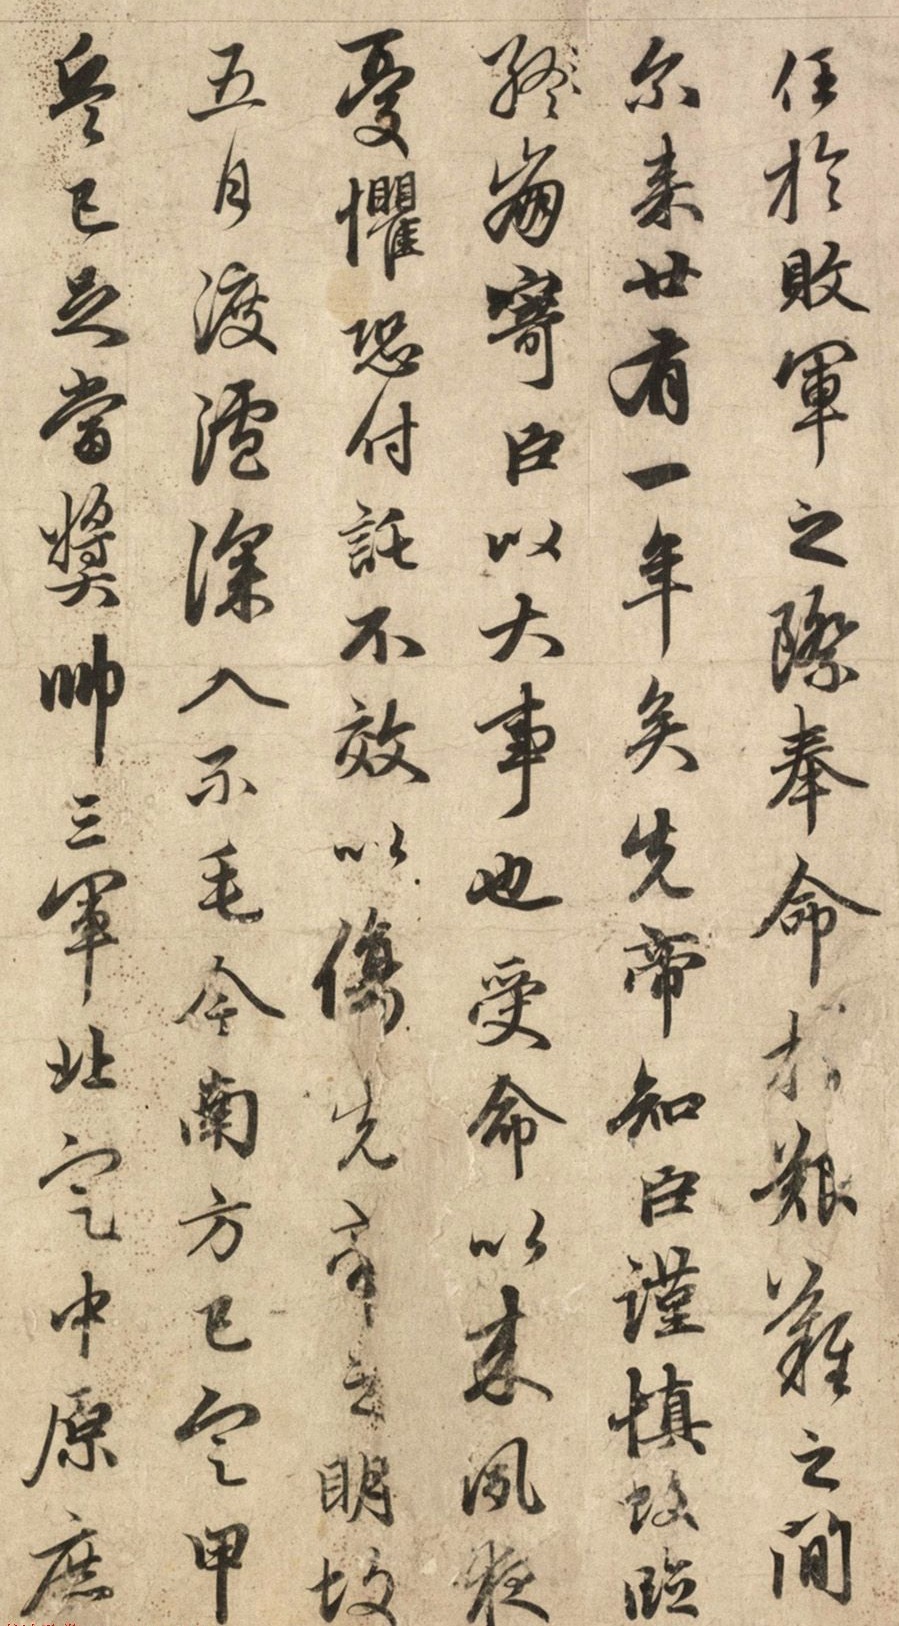 任於敗軍之際奉命於艱難之間
尒来廿有一年矣先帝知臣謹慎故臨
終崩寄臣以大事也受命以来夙夜
憂懼恐付託不效以傷先帝之明故
五月渡瀘深入不毛今南方已定甲
兵已足當奬帥三軍北定中原庶